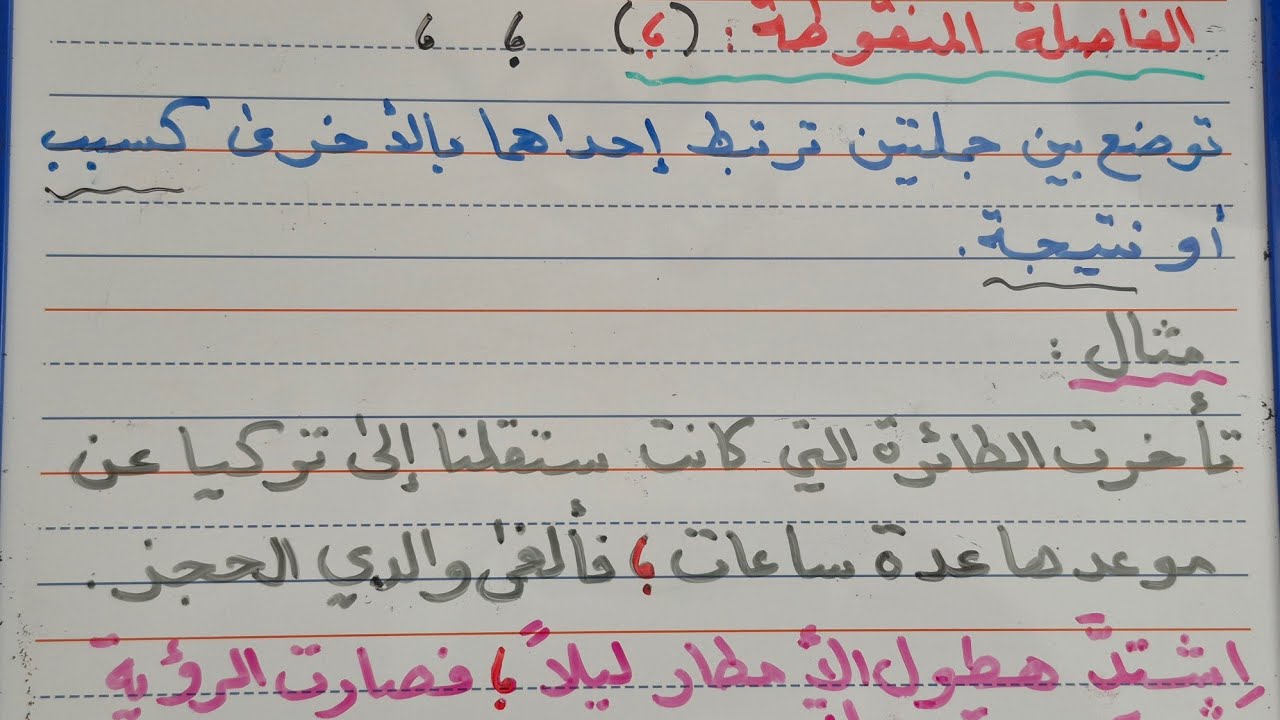 الفاصلة المنقوطة : (؛) ؛ ؛
توضع بين جملتين ترتبط إحداهما بالأخرى كسبب
أو نتيجة .
مثال :
تأخرت الطائرة التي كانت ستقلنا إلى تركيا عن
موعدها عدة ساعات ؛ فألغى والدي الحجز .
اِشتدَّ هطول الأمطار ليلاً ؛ فصارت الرؤية